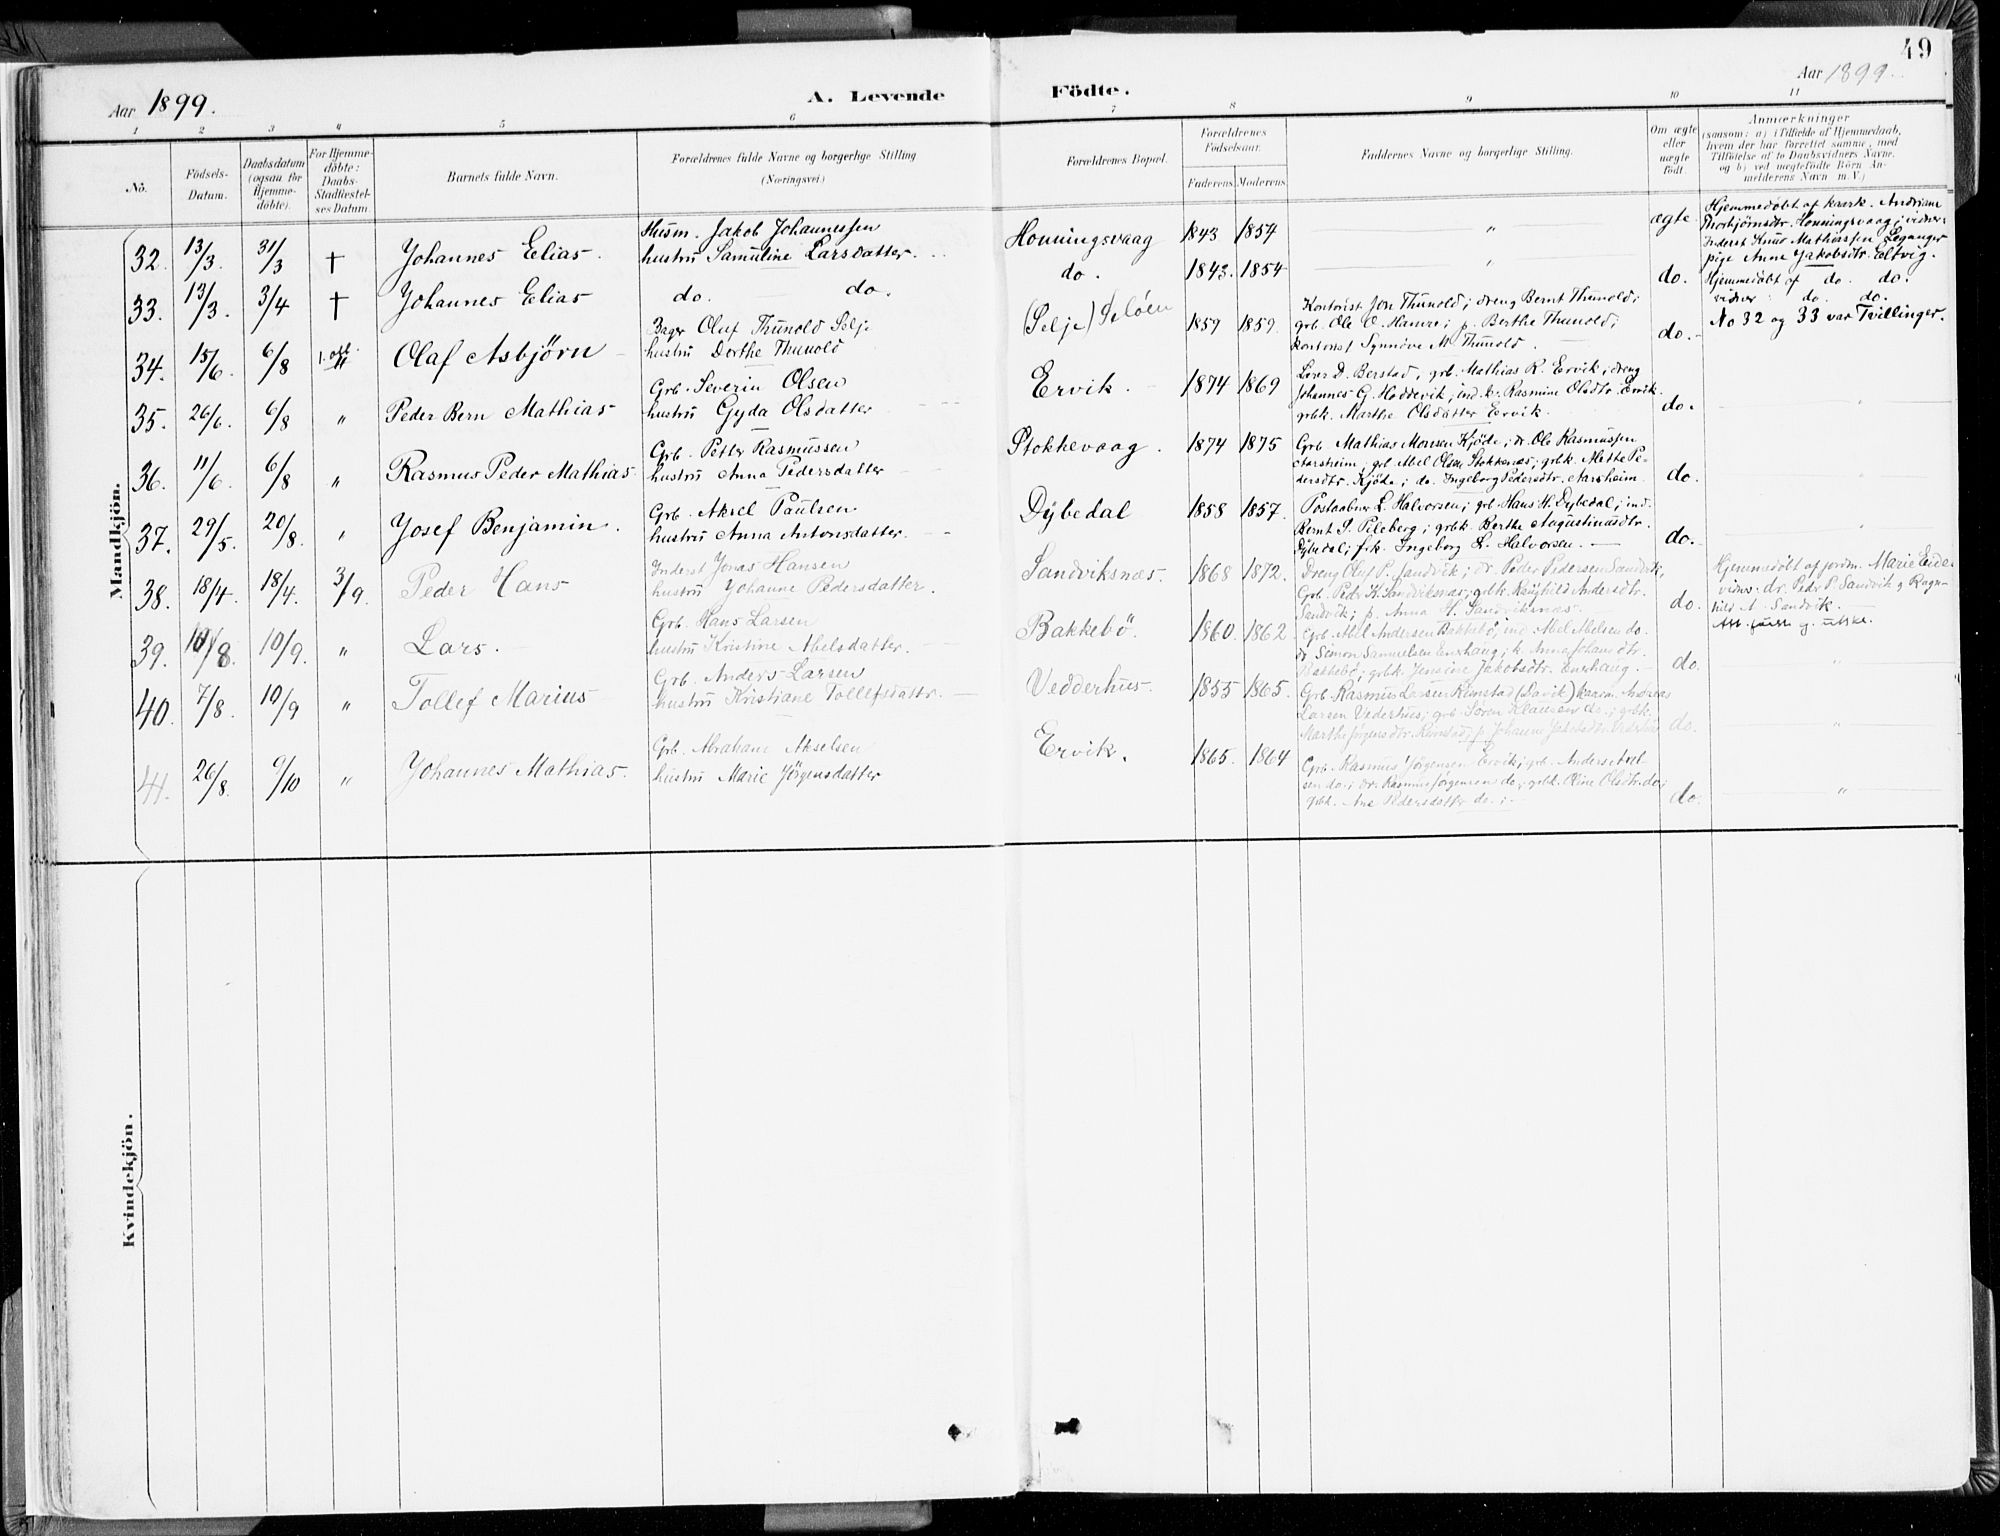 49
Aar 1899.
A. Levende Födte.
Aar 1899.
1 2 3 4 5 6 7 8 9 10 11
No.
Födsels-
Datum.
Daabsdatum
(ogsaa for
Hjemme-
döbte).
For Hjemme-
döbte:
Daabs-
Stadfestel-
ses Datum.
Barnets fulde Navn.
Forældrenes fulde Navne og borgerlige Stilling
(Næringsvei.)
Forældrenes Bopæl.
Forældrenes
Födselsaar.
Faderens. Moderens.
Faddernes Navne og borgerlige Stilling.
Om ægte
eller
uægte
födt.
Anmærkninger
(saasom: a) i Tilfælde af Hjemmedaab,
hvem der har forrettet samme, med
Tilföielse af to Daabsvidners Navne,
og b) ved uægtefödte Börn An-
melderens Navn m. V.)
Mandkjön.
32. 13/3. 31/3 † Johannes Elias.
Husm. Jakob Johannessen
hustru Samuline Larsdatter.
Honningsvaag 1843 1854 " ægte.
Hjemmedöbt af kaark. Andriane
Thorbjörnsdtr. Honningsvaag; vidner:
Inderst Knud Mathiassen Leganger
pige Anne Jakobsdtr. Eltvig.
33. 13/3. 3/4 † Johannes Elias
do. — do.
do. 1843. 1854 " do.
Hjemmedöbt af do. do.
vidner: do. do.
No 32 og 33 var Tvillinger.
34. 15/6. 6/8 Olaf Asbjörn
Bager Oluf Thunold Selje
hustru Dorthe Thunold
(Selje) Selöen 1859 1859.
Kontorist Jon Thunold; dreng Bernt Thunold;
grb. Ole O. Hamre; p. Berthe Thunold;
kontorist Synnöve M. Thunold.
do.
35. 26/6. 6/8 " Peder Bern Mathias
Grb. Severin Olsen
hustru Gyda Olsdatter
Ervik. 1874 1869
Lærer D. Berstad, grb. Mathias R. Ervik; dreng
Johannes G. Hoddevik; ind.k. Rasmine Olsdtr. Ervik.
grbk. Marthe Olsdatter Ervik.
do. "
36. 11/6. 6/8 " Rasmus Peder Mathias.
Grb. Petter Rasmussen
hustru Anna Pedersdatter
Stokkevaag. 1874 1875
Grb. Mathias Monsen Kjöde; dr. Ole Rasmussen
Aarsheim, grb. Abel Olsen Stokkenes; grbk. Mette Pe-
dersdtr. Kjöde; do. Ingeborg Pedersdtr. Aarsheim.
do. "
37. 29/5. 20/8. " Josef Benjamin.
Grb. Aksel Paulsen
hustru Anna Antonsdatter
Dybedal 1858 1857.
Postaabner L. Halvorsen; grb. Hans H. Dybedal; ind.
Bernt S. Pileberg; grbk. Berthe Augustinusdtr.
Dybedal; frk. Ingeborg L. Halvorsen.
do. "
38. 18/4. 18/4. 3/9. Peder Hans
Inderst Jonas Hansen
hustru Johanne Pedersdatter.
Sandviksnæs. 1868 1872.
Dreng Oluf P. Sandvik; dr. Peder Pedersen Sandvik,
Grb. Peder K. Sandviksnæs; grbk. Ragnhild Andersdtr.
Sandvik; p. Anna H. Sandviksnæs.
do.
Hjemmedöbt af jordm. Marie Eide
vidner: dr. Peder P. Sandvik og Ragn-
hild A. Sandvik.
39. 10/8. 10/9. " Lars.
Grb. Hans Larsen
hustru Kristine Abelsdatter.
Bakkebö. 1860. 1862
Grb. Abel Andersen Bakkebö, ind. Abel Abelsen do.
dr. Simon Samuelsen Enerhaug; k. Anna Johansdtr.
Bakkebö; grbk. Jensine Jakobsdtr. Enerhaug.
do. "
40. 7/8. 10/9 " Tollef Marius
Grb. Anders Larsen
hustru Kristiane Tollefsdattr.
Vedderhus. 1855 1865.
Grb. Rasmus Larsen Rimstad (Davik) kaarm. Andreas
Larsen Vederhus; grb. Sören Klausen do.; grbk.
Marthe Jörgensdtr. Rimstad; p. Johanne Jakobsdtr. Vederhus
do. "
41. 26/8. 9/10 " Johannes Mathias.
Grb. Abraham Akselsen
hustru Marie Jörgensdatter
Ervik. 1865. 1864
Grb. Rasmus Jörgensen Ervik; grb. Anders Axel-
sen do.; dr. Rasmus Jörgensen do.; grbk. Oline Olsdtr. do;
grbk. Ane Pedersdatter do.;
do. "
Kvindekjön.